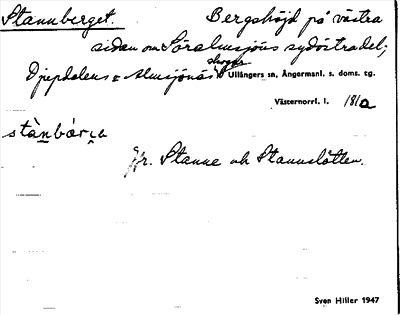 Stannberget. Bergshöjd på västra
sidan om Söralmsjöns sydöstra del;
Djupdalens = Almsjönäs skogar
Ullångers sn, Ångermanl. s. doms. tg.
Västernorrl. l. 181a
stànbárça
Jfr. Stanne och Stannslåtten.
Sven Hiller 1947